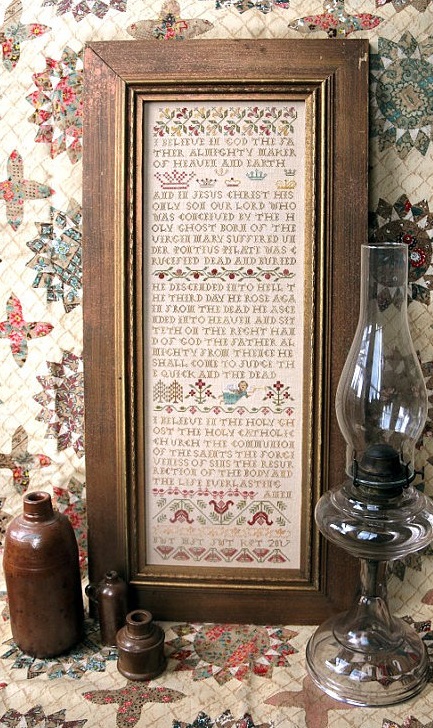 I BELIEVE IN GOD THE FA
THER ALMIGHTY MAKER
OF HEAVEN AND EARTH
AND IN JESUS CHRIST HIS
ONLY SON OUR LORD WHO
WAS CONCEIVED BY THE H
OLY GHOST BORN OF THE
VIRGIN MARY SUFFERED UN
DER PONTIUS PILATE WAS C
RUCIFIED DEAD AND BURIED
HE DESCENDED INTO HELL T
HE THIRD DAY HE ROSE AGA
IN FROM THE DEAD HE ASCE
NDED INTO HEAVEN AND SIT
TETH ON THE RIGHT HAN
D OF GOD THE FATHER AL
MIGHTY FROM THENCE HE
SHALL COME TO JUDGE TH
E QUICK AND THE DEAD
I BELIEVE IN THE HOLY GH
OST THE HOLY CATHOLIC
CHURCH THE COMMUNION
OF THE SAINTS THE FORGI
VENESS OF SINS THE RESUR
RECTION OF THE BODY AND
THE LIFE EVERLASTING
AMEN
2017